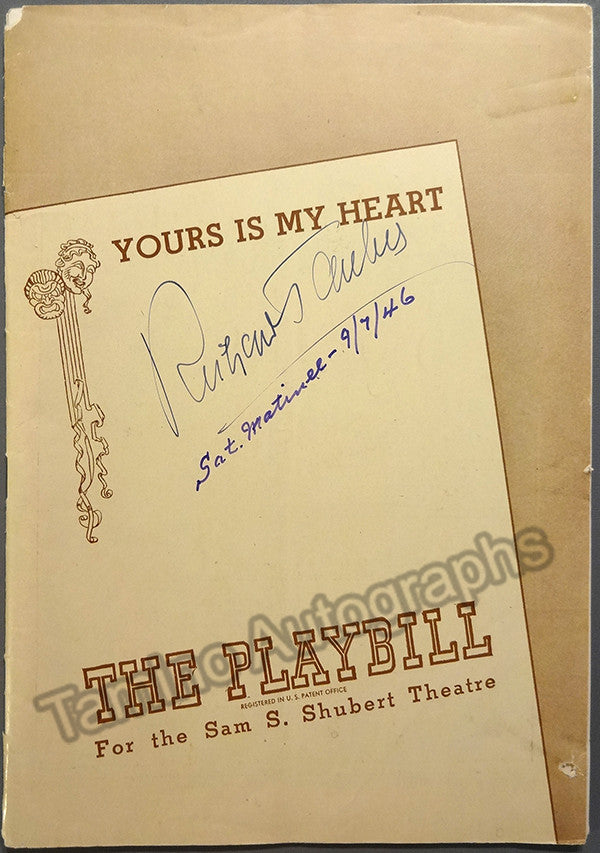 YOURS IS MY HEART
Richard Tauber
Sat. Matinee - 9/7/46
THE PLAYBILL
REGISTERED IN U. S. PATENT OFFICE
For the Sam S. Shubert Theatre
Tamino Autographs